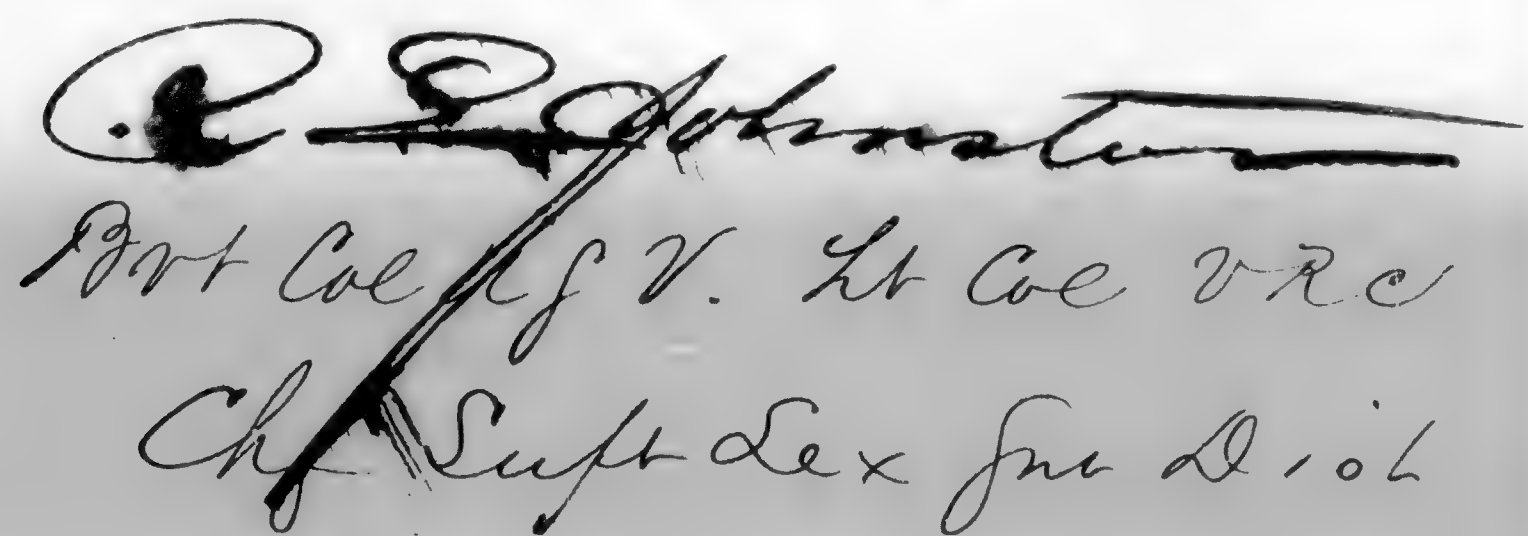 R E Johnston
Bvt Col U S V. Lt Col V R C
Chf Supt Lex Sub Dist